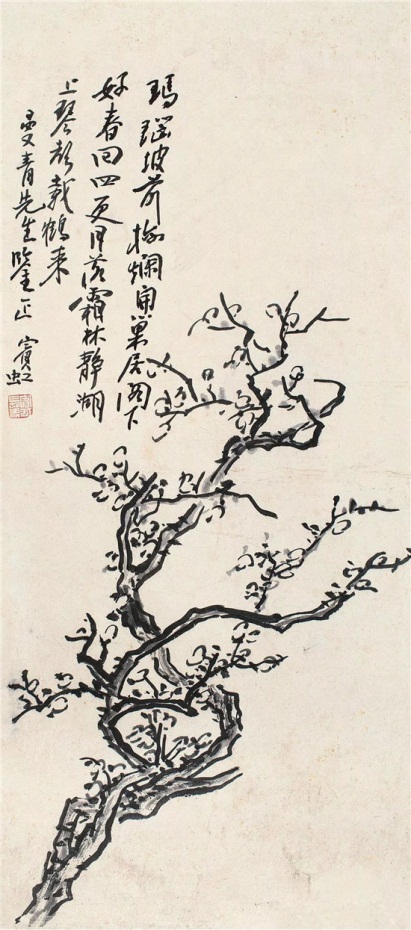 瑪瑙坡前梅爛開巢居閣下
好春回四更月落霜林靜湖
上琴聲載鶴來
曼青先生鑒正 賓虹